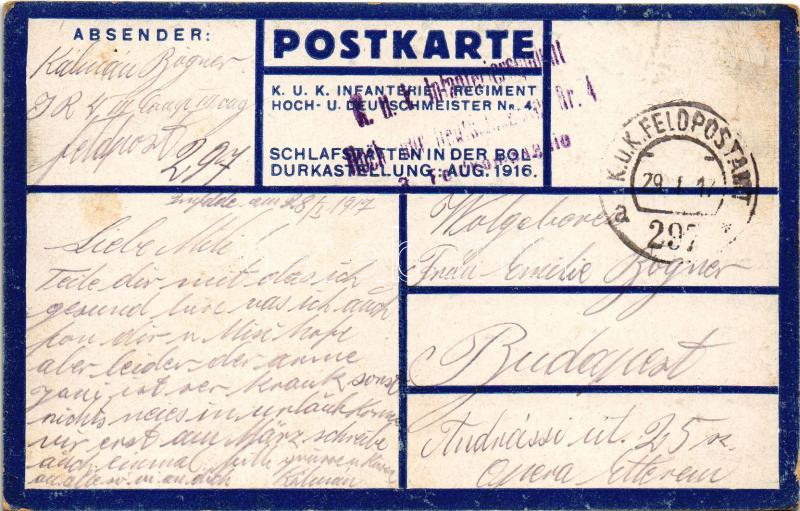 ABSENDER:
Kálmán Bogner
I R 4 III Comp III Zug
Feldpost
297
POSTKARTE
K. U. K. INFANTERIE REGIMENT
HOCH- U. DEUTSCHMEISTER Nr. 4.
SCHLAFSTÄTTEN IN DER BOL-
DURKASTELLUNG: AUG. 1916.
K. u. k. Infanterieregiment
Hoch- Nr. 4
K.U.K. FELDPOSTAMT
29. I. 17
a
297
am 28/I 1917
Liebe Mili
Teile dir mit das ich
gesund bin was ich auch
fon dir u Misi hofe
aber leider der arme
ist ser krank sonst
nichts neies in urlaub kome
wir erst am März schreibe
auch einmal
an dich Kálmán
Wolgeborene
Frau Emilie Bogner
Budapest
Andrássi út. 25 sz.
Opera Étterem